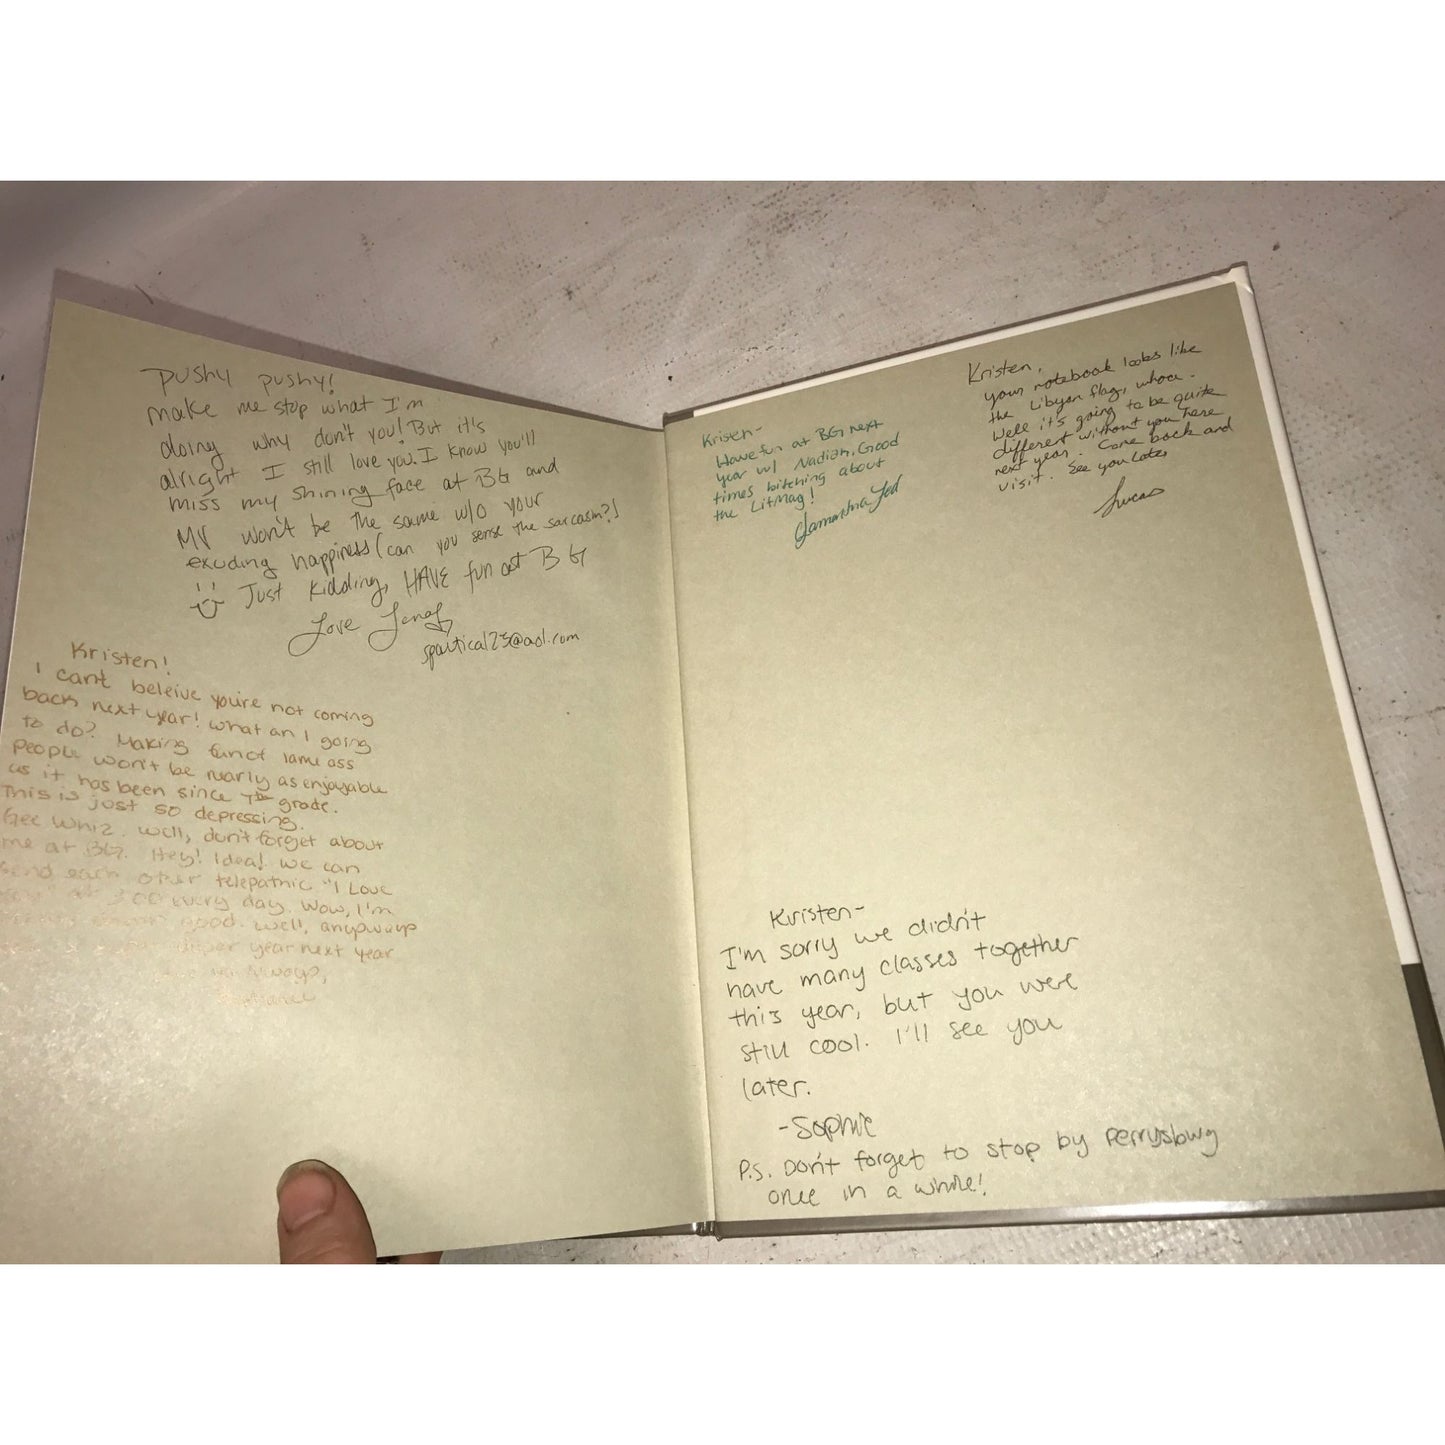 pushy pushy!
make me stop what I'm
doing why don't you! But it's
alright I still love you. I know you'll
miss my shining face at BG and
MV won't be the same w/o your
exuding happiness (can you sense the sarcasm?)
Just kidding, HAVE fun at BG
Love
@aol.com
Kristen!
I can't beleive you're not coming
back next year! What am I going
to do? Making fun of lame ass
people won't be nearly as enjoyable
as it has been since 7th grade.
This is just so depressing.
Gee Whiz. Well, don't forget about
me at BG. Hey! Idea! We can
send each other telepathic "I Love
3:00 every day. Wow, I'm
good. Well, anyways
year next year
Always,
Kristen-
Have fun at BG next
year w/ Nadiah. Good
times bitching about
the LitMag!
Samantha
Kristen,
your notebook looks like
the Libyan flag, whoa.
Well it's going to be quite
different without you here
next year. Come back and
visit. See you later
Lucas
Kristen-
I'm sorry we didn't
have many classes together
this year, but you were
still cool. I'll see you
later.
-Sophie
P.S. Don't forget to stop by Perrysburg
once in a while!